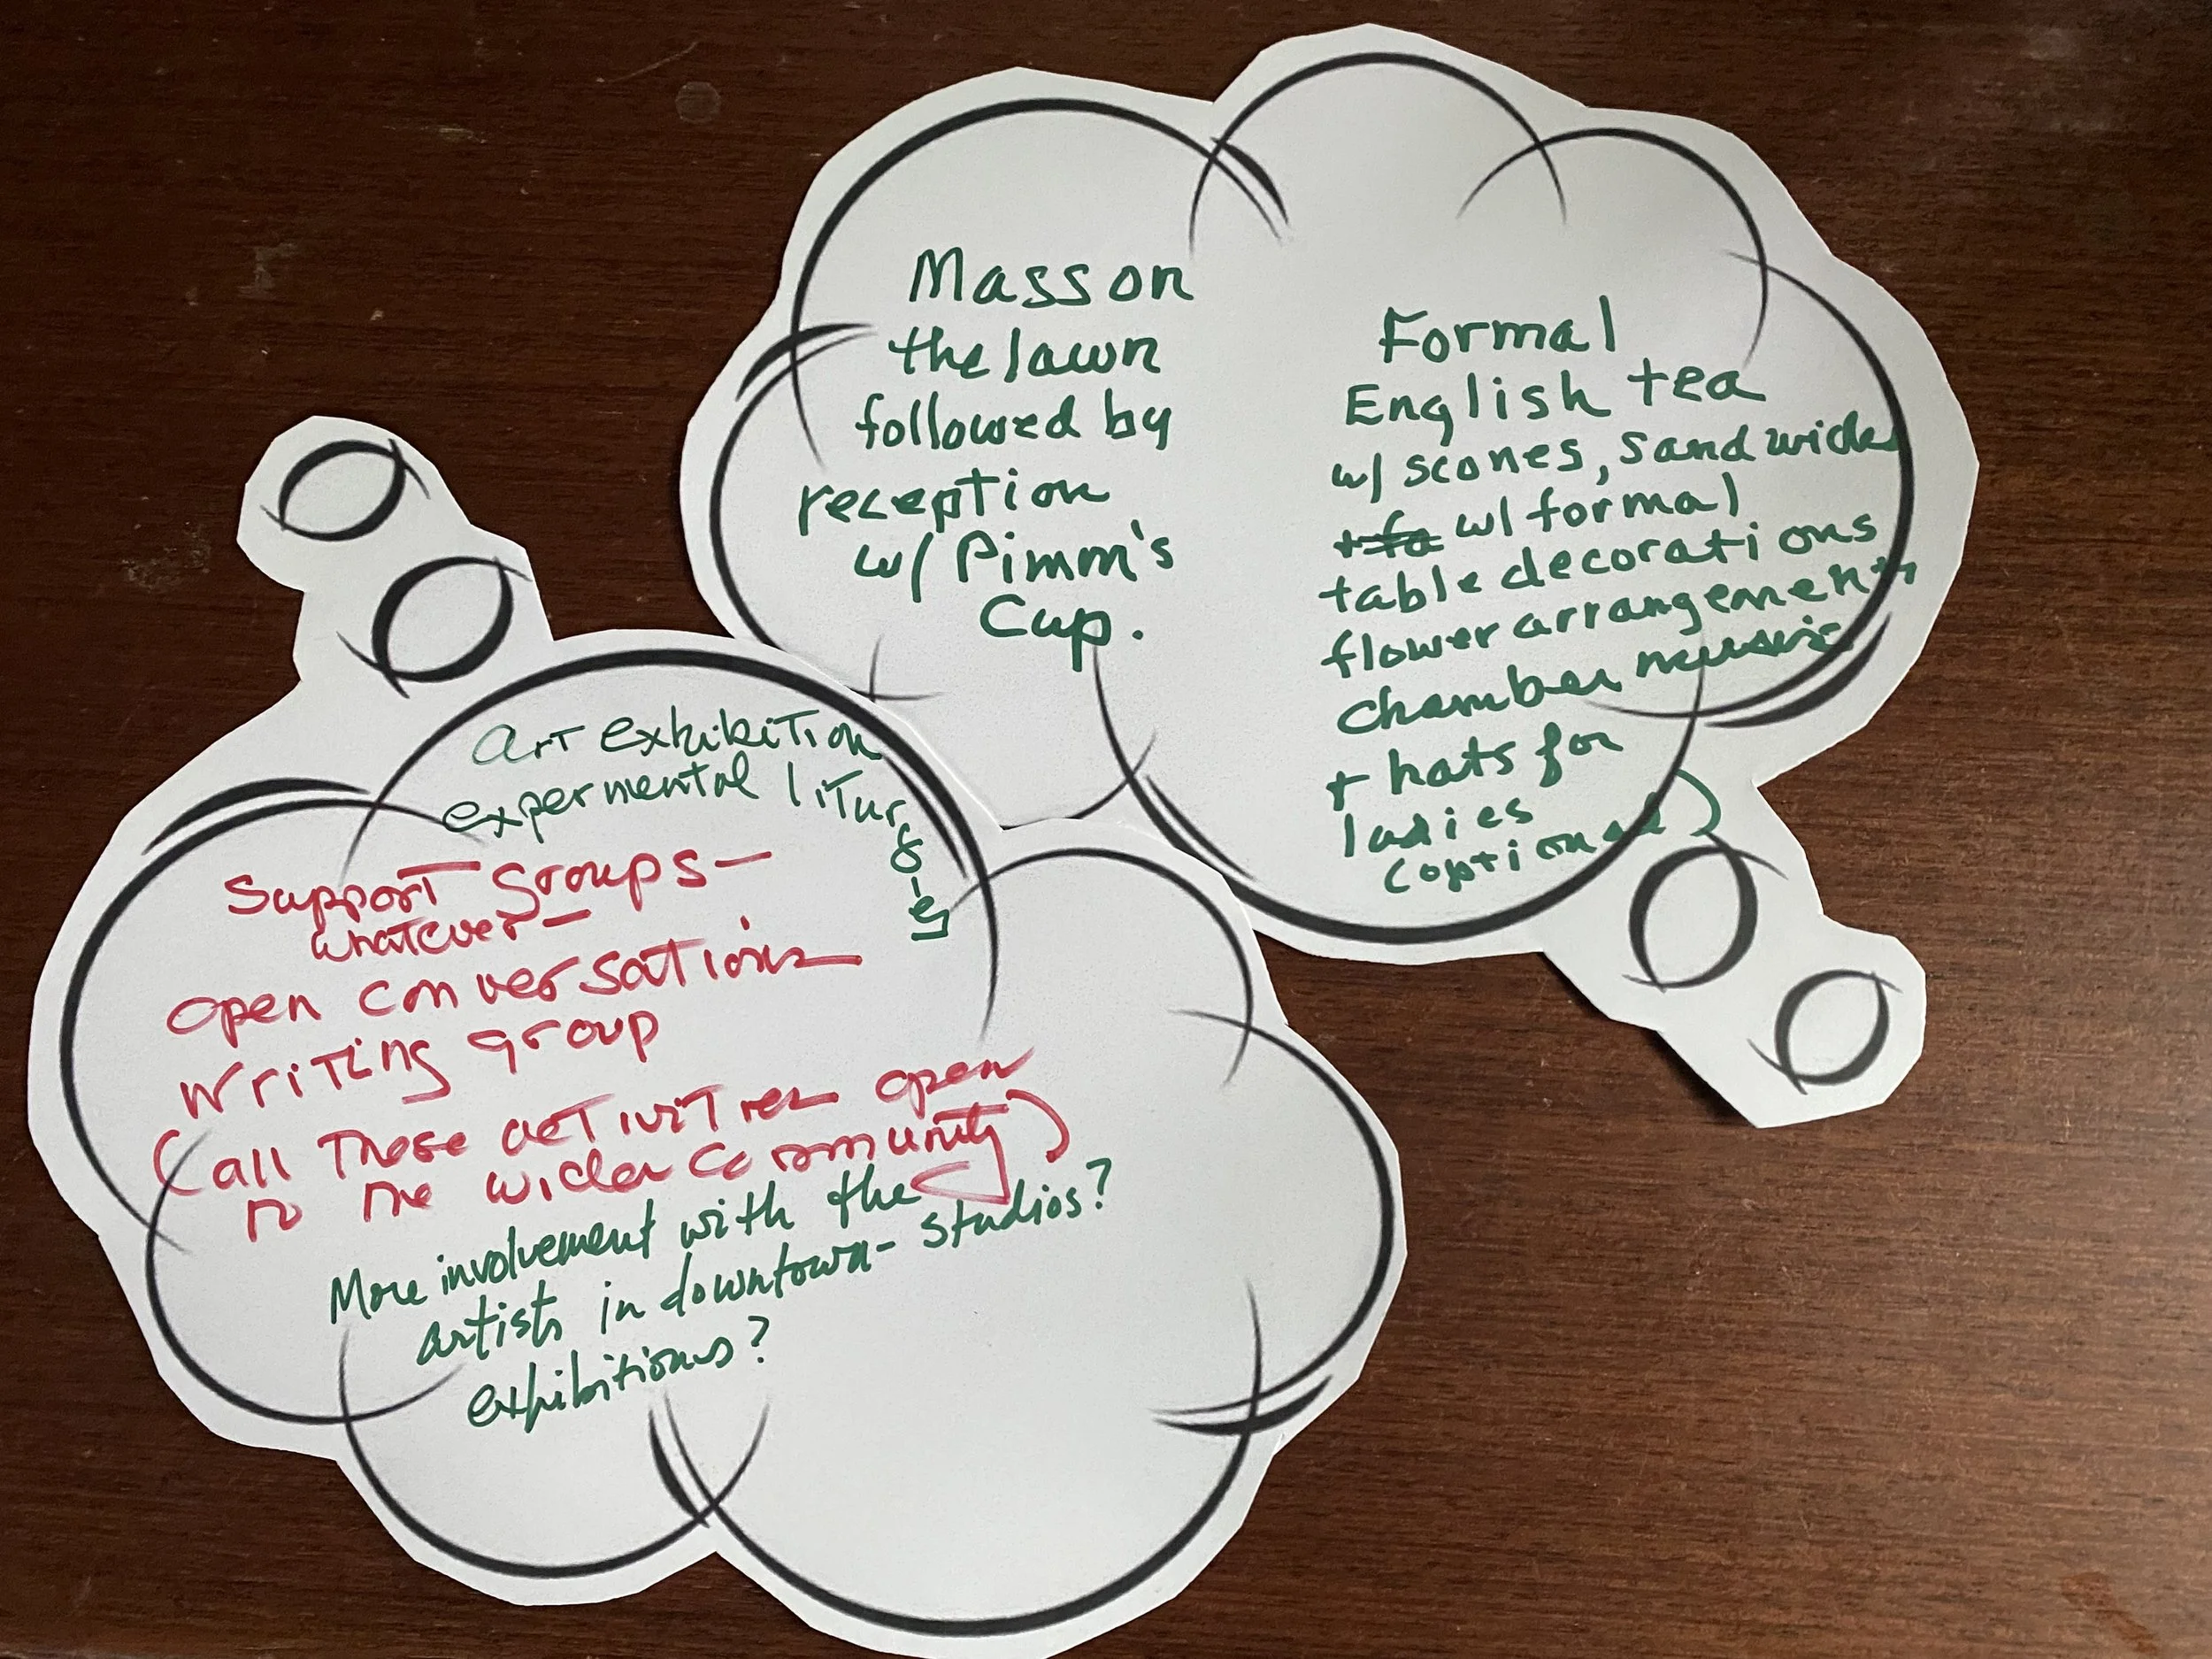 Mass on
the lawn
followed by
reception
w/ Pimm's
Cup.
Formal
English tea
w/ scones, sandwiches
w/ formal
table decorations
flower arrangements
chamber music
+ hats for
ladies
(optional)
art exhibition
expermental liturgies
Support groups—
whatever—
open conversations
writing group
(all these activities open
to the wider community)
More involvement with the
artists in downtown - studios?
exhibitions?